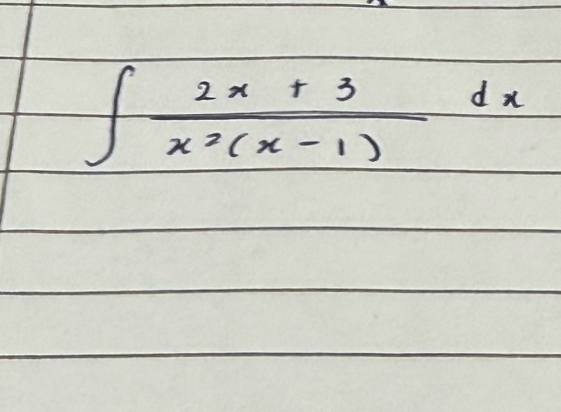 ∫ (2x + 3) / (x²(x - 1)) dx